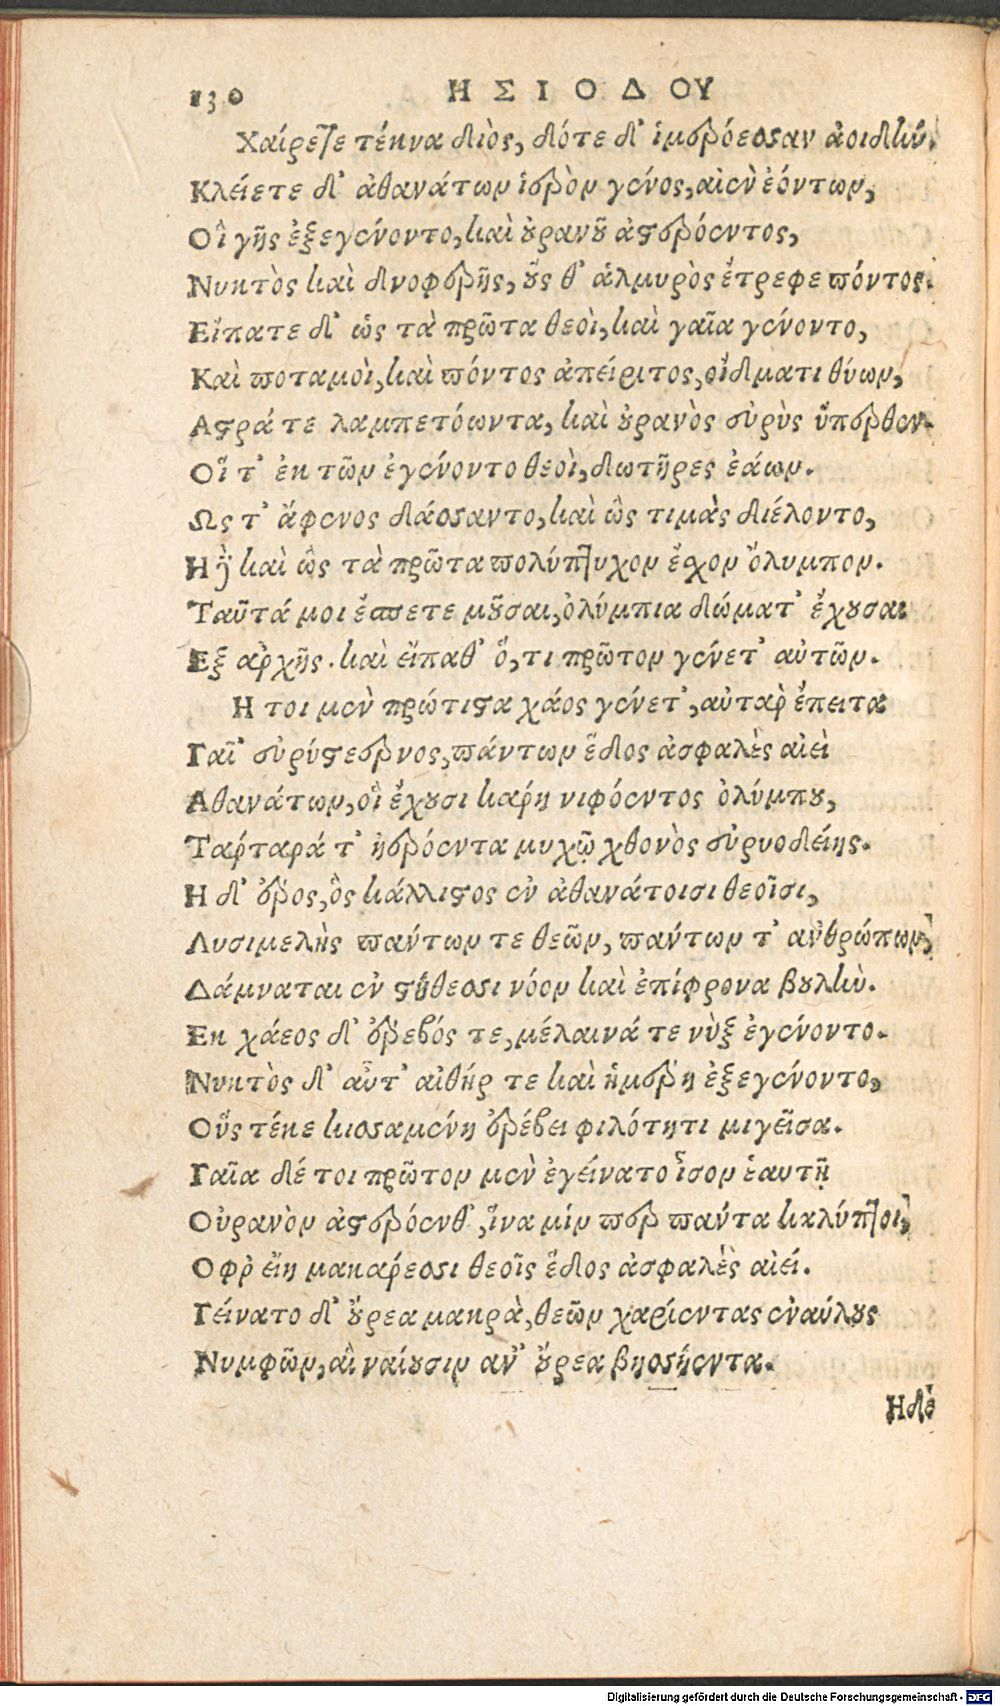 130 ΗΣΙΟΔΟΥ
Χαίρετε τέκνα διὸς, δότε δ' ἱμερόεσσαν ἀοιδήν.
Κλείετε δ' ἀθανάτων ἱερὸν γένος, αἰὲν ἐόντων,
Οἳ γῆς ἐξεγένοντο, καὶ οὐρανοῦ ἀστερόεντος,
Νυκτὸς καὶ δνοφερῆς, οὓς θ' ἁλμυρὸς ἔτρεφε πόντος.
Εἴπατε δ' ὡς τὰ πρῶτα θεοὶ, καὶ γαῖα γένοντο,
Καὶ ποταμοὶ, καὶ πόντος ἀπείριτος, οἴδματι θύων,
Αστρά τε λαμπετόωντα, καὶ οὐρανὸς εὐρὺς ὕπερθεν.
Οἵ τ' ἐκ τῶν ἐγένοντο θεοὶ, δωτῆρες ἐάων.
Ως τ' ἄφενος δάσσαντο, καὶ ὣς τιμὰς διέλοντο,
Η δὲ καὶ ὣς τὰ πρῶτα πολύπτυχον ἔσχον ὄλυμπον.
Ταῦτά μοι ἔσπετε μοῦσαι, ὀλύμπια δώματ' ἔχουσαι
Εξ ἀρχῆς. καὶ εἴπαθ' ὅ, τι πρῶτον γένετ' αὐτῶν.
Η τοι μὲν πρώτιστα χάος γένετ', αὐτὰρ ἔπειτα
Γαῖ' εὐρύστερνος, πάντων ἕδος ἀσφαλὲς αἰεὶ
Αθανάτων, οἳ ἔχουσι κάρη νιφόεντος ὀλύμπου,
Ταρταρά τ' ἠερόεντα μυχῷ χθονὸς εὐρυοδείης.
Η δ' ἔρος, ὃς κάλλιστος ἐν ἀθανάτοισι θεοῖσι,
Λυσιμελὴς πάντων τε θεῶν, πάντων τ' ἀνθρώπων,
Δάμναται ἐν στήθεσσι νόον καὶ ἐπίφρονα βουλήν.
Εκ χάεος δ' ἔρεβός τε, μέλαινά τε νὺξ ἐγένοντο.
Νυκτὸς δ' αὖτ' αἰθήρ τε καὶ ἡμέρη ἐξεγένοντο,
Οὓς τέκε κυσσαμένη ἐρέβει φιλότητι μιγεῖσα.
Γαῖα δέ τοι πρῶτον μὲν ἐγείνατο ἶσον ἑαυτῇ
Οὐρανὸν ἀστερόενθ', ἵνα μίν περ πάντα καλύπτοι,
Οφρ εἴη μακάρεσσι θεοῖς ἕδος ἀσφαλὲς αἰεί.
Γείνατο δ' οὔρεα μακρὰ, θεῶν χαρίεντας ἐναύλους
Νυμφῶν, αἳ ναίουσιν ἀν' οὔρεα βησσήεντα.
Ηδὲ
Digitalisierung gefördert durch die Deutsche Forschungsgemeinschaft - DFG